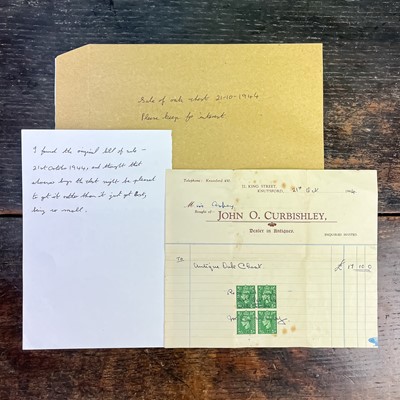 Bill of sale chest 21-10-1944
Please keep for interest.
I found the original bill of sale -
21st October 1944, and thought that
whoever buys the chest might be pleased
to get it rather than it just get lost,
being so small.
Telephone: Knutsford
KING STREET,
KNUTSFORD,
21st Oct 1944
Bought of
JOHN O. CURBISHLEY,
Dealer in Antiques.
INQUIRIES INVITED
To
Antique Oak Chest
£